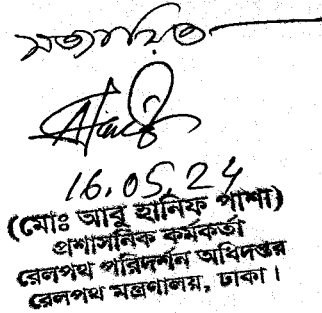 সত্যায়িত
16.05.24
(মোঃ আবু হানিফ পাশা)
প্রশাসনিক কর্মকর্তা
রেলপথ পরিদর্শন অধিদপ্তর
রেলপথ মন্ত্রণালয়, ঢাকা।